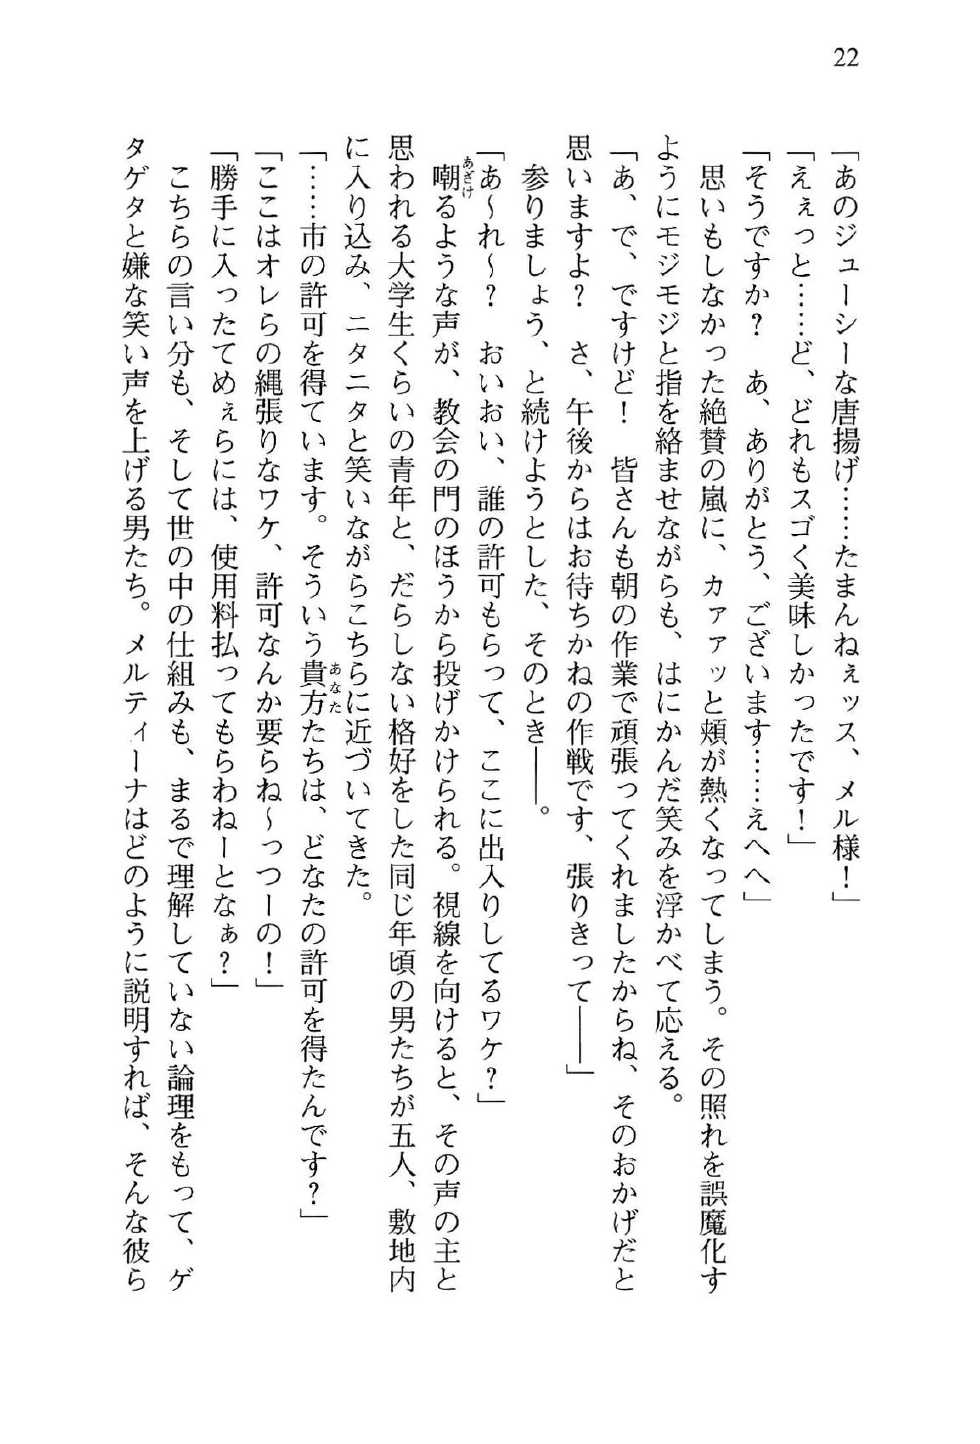 22
「あのジューシーな唐揚げ……たまんねぇッス、メル様！」
「えぇっと……ど、どれもスゴく美味しかったです！」
「そうですか？　あ、ありがとう、ございます……えへへ」
　思いもしなかった絶賛の嵐に、カァァッと頬が熱くなってしまう。その照れを誤魔化す
ようにモジモジと指を絡ませながらも、はにかんだ笑みを浮かべて応える。
「あ、で、ですけど！　皆さんも朝の作業で頑張ってくれましたからね、そのおかげだと
思いますよ？　さ、午後からはお待ちかねの作戦です、張りきって――」
　参りましょう、と続けようとした、そのとき――。
「あ～れ～？　おいおい、誰の許可もらって、ここに出入りしてるワケ？」
　嘲るような声が、教会の門のほうから投げかけられる。視線を向けると、その声の主と
思われる大学生くらいの青年と、だらしない格好をした同じ年頃の男たちが五人、敷地内
に入り込み、ニタニタと笑いながらこちらに近づいてきた。
「……市の許可を得ています。そういう貴方たちは、どなたの許可を得たんです？」
「ここはオレらの縄張りなワケ、許可なんか要らね～っつーの！」
「勝手に入ったてめぇらには、使用料払ってもらわねーとなぁ？」
　こちらの言い分も、そして世の中の仕組みも、まるで理解していない論理をもって、ゲ
タゲタと嫌な笑い声を上げる男たち。メルティーナはどのように説明すれば、そんな彼ら